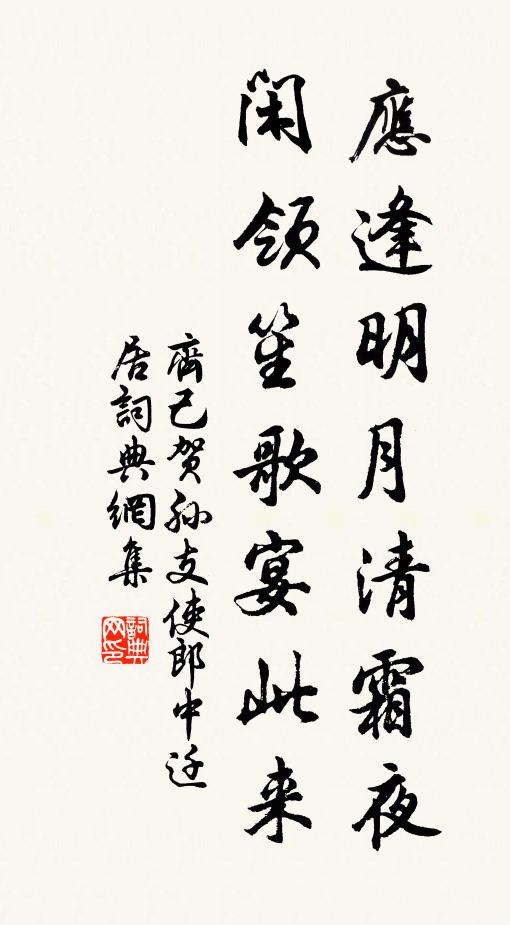 應逢明月清霜夜
閑領笙歌宴此来
齊己賀孫支使郎中迁
居詞典網集
詞典网印